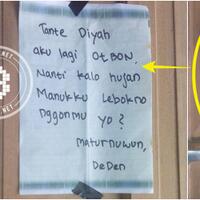 Tante Diyah
aku lagi OtBON.
Nanti kalo hujan
Manukku Lebokno
nggonmu yo?
maturnuwun,
DeDen